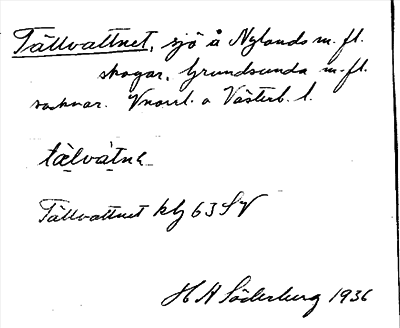 Tällvattnet, sjö å Nylands m. fl.
skogar, Grundsunda m. fl.
socknar. Vnorrl. o Västerb. l.
tä̀lvàtnə
Tällvattnet kbl 63 SV
H A Söderberg 1936